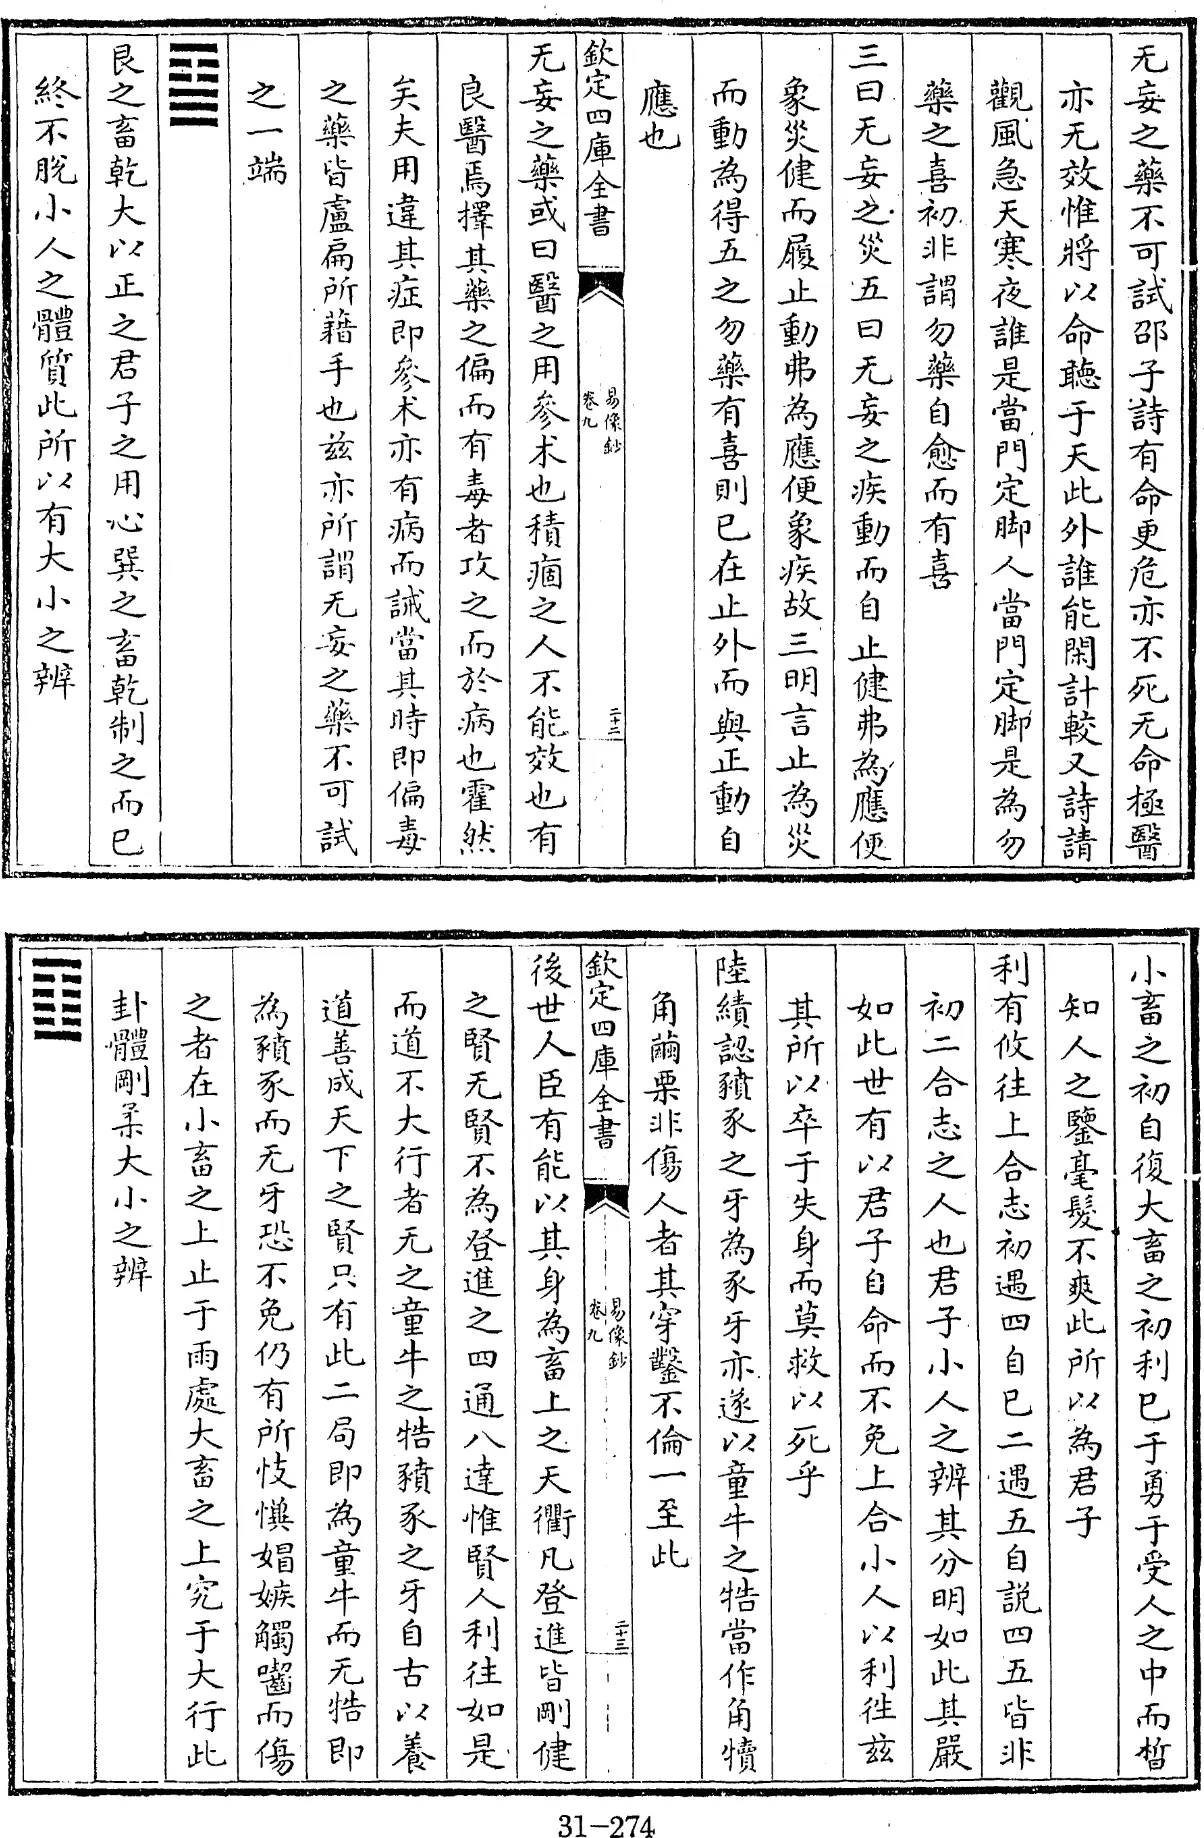 无妄之藥不可試邵子詩有命更危亦不死无命極醫
亦无效惟將以命聽于天此外誰能閑計較又詩請
觀風急天寒夜誰是當門定脚人當門定脚是為勿
藥之喜初非謂勿藥自愈而有喜
三曰无妄之災五曰无妄之疾動而自止健弗為應便
象災健而履止動弗為應便象疾故三明言止為災
而動為得五之勿藥有喜則已在止外而與正動自
應也
欽定四庫全書
易像鈔
卷九
二十三
无妄之藥或曰醫之用參朮也積痼之人不能效也有
良醫焉擇其藥之偏而有毒者攻之而於病也霍然
矣夫用違其症即參朮亦有病而誠當其時即偏毒
之藥皆盧扁所藉手也兹亦所謂无妄之藥不可試
之一端
䷙
艮之畜乾大以正之君子之用心巽之畜乾制之而已
終不脫小人之體質此所以有大小之辨
小畜之初自復大畜之初利已于勇于受人之中而晳
知人之鑒毫髮不爽此所以為君子
利有攸往上合志初遇四自已二遇五自説四五皆非
初二合志之人也君子小人之辨其分明如此其嚴
如此世有以君子自命而不免上合小人以利徃兹
其所以卒于失身而莫救以死乎
陸績認豶豕之牙為豕牙亦遂以童牛之牿當作角犢
角繭栗非傷人者其穿鑿不倫一至此
欽定四庫全書
易像鈔
卷九
二十三
後世人臣有能以其身為畜上之天衢凡登進皆剛健
之賢无賢不為登進之四通八達惟賢人利往如是
而道不大行者无之童牛之牿豶豕之牙自古以養
道善成天下之賢只有此二局即為童牛而无牿即
為豶豕而无牙恐不免仍有所忮懻娼嫉觸噛而傷
之者在小畜之上止于雨處大畜之上究于大行此
卦體剛柔大小之辨
31-274